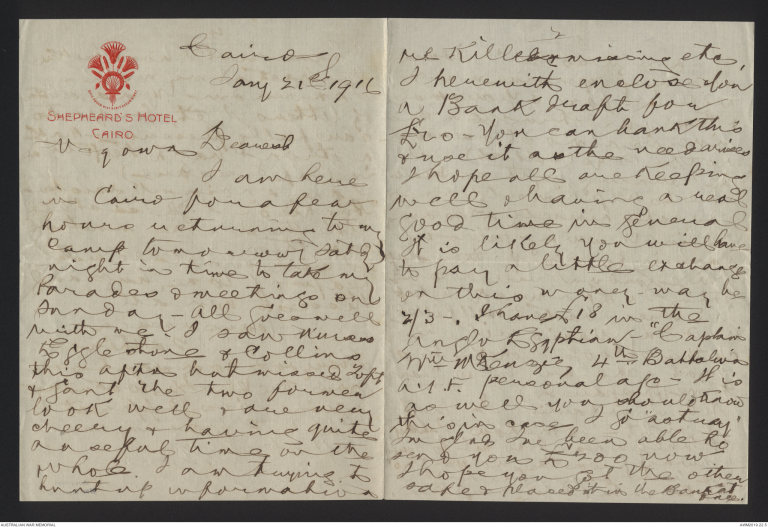 SHEPHEARD'S HOTEL
CAIRO
Cairo
Jany 21st 1916
My own Dearest
I am here
in Cairo for a few
hours returning to my
Camp tomorrow (Satdy)
night in time to take my
Parades & meetings on
Sunday - All goes well
with me. I saw Nurses
Egglestone & Collins
this aftn but missed
& the two former
look well & are very
cheery & having quite
a useful time on the
whole. I am trying to
hunt up information
re Killed missing etc,
I herewith enclose you
a Bank draft for
£20 - You can bank this
& use it as the need arises
I hope all are keeping
well & having a real
good time in general
It is likely you will have
to pay a little exchange
on this money - may be
2/3 -. I have £18 in the
Anglo Egyptian - "Captain
Wm McKenzie, 4th Battalion
A.I.F. personal a/c - It is
as well you should know
this in case I go "out way"
Im glad Ive been able to
send you £200 now
I hope you got the other
safe & placed it in the Bank at
once.
AUSTRALIAN WAR MEMORIAL